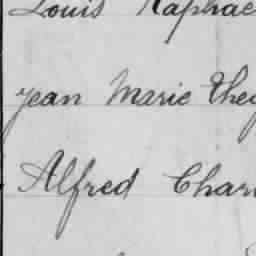 Louis Raphae
Jean Marie They
Alfred Char